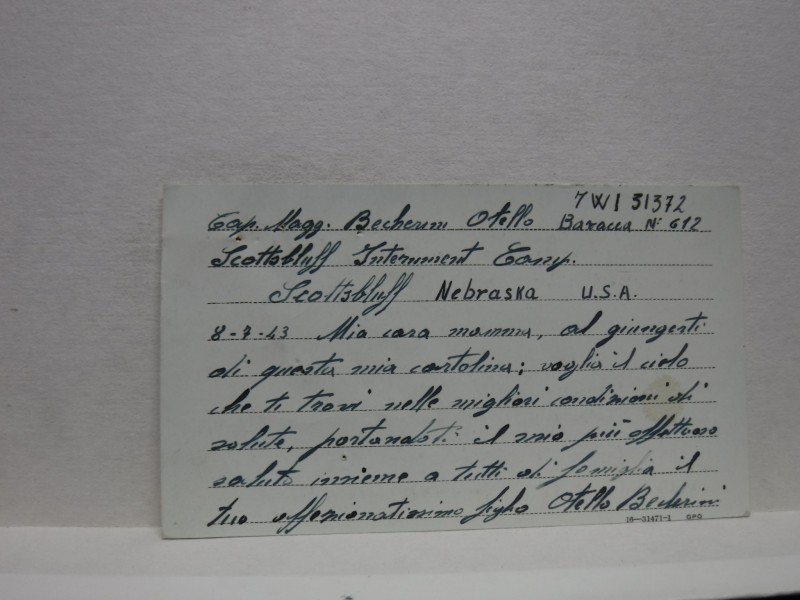 7 WI 31372
Cap. Magg. Becherini Otello Baracca N° 612
Scottsbluff Internment Camp.
Scottsbluff Nebraska U.S.A.
8-7-43 Mia cara mamma, al giungerti
di questa mia cartolina; voglia il cielo
che ti trovi nelle migliori condizioni di
salute, portandoti il mio più affettuoso
saluto insieme a tutti di famiglia il
tuo affezionatissimo figlio Otello Becherini
16—31471-1 GPO